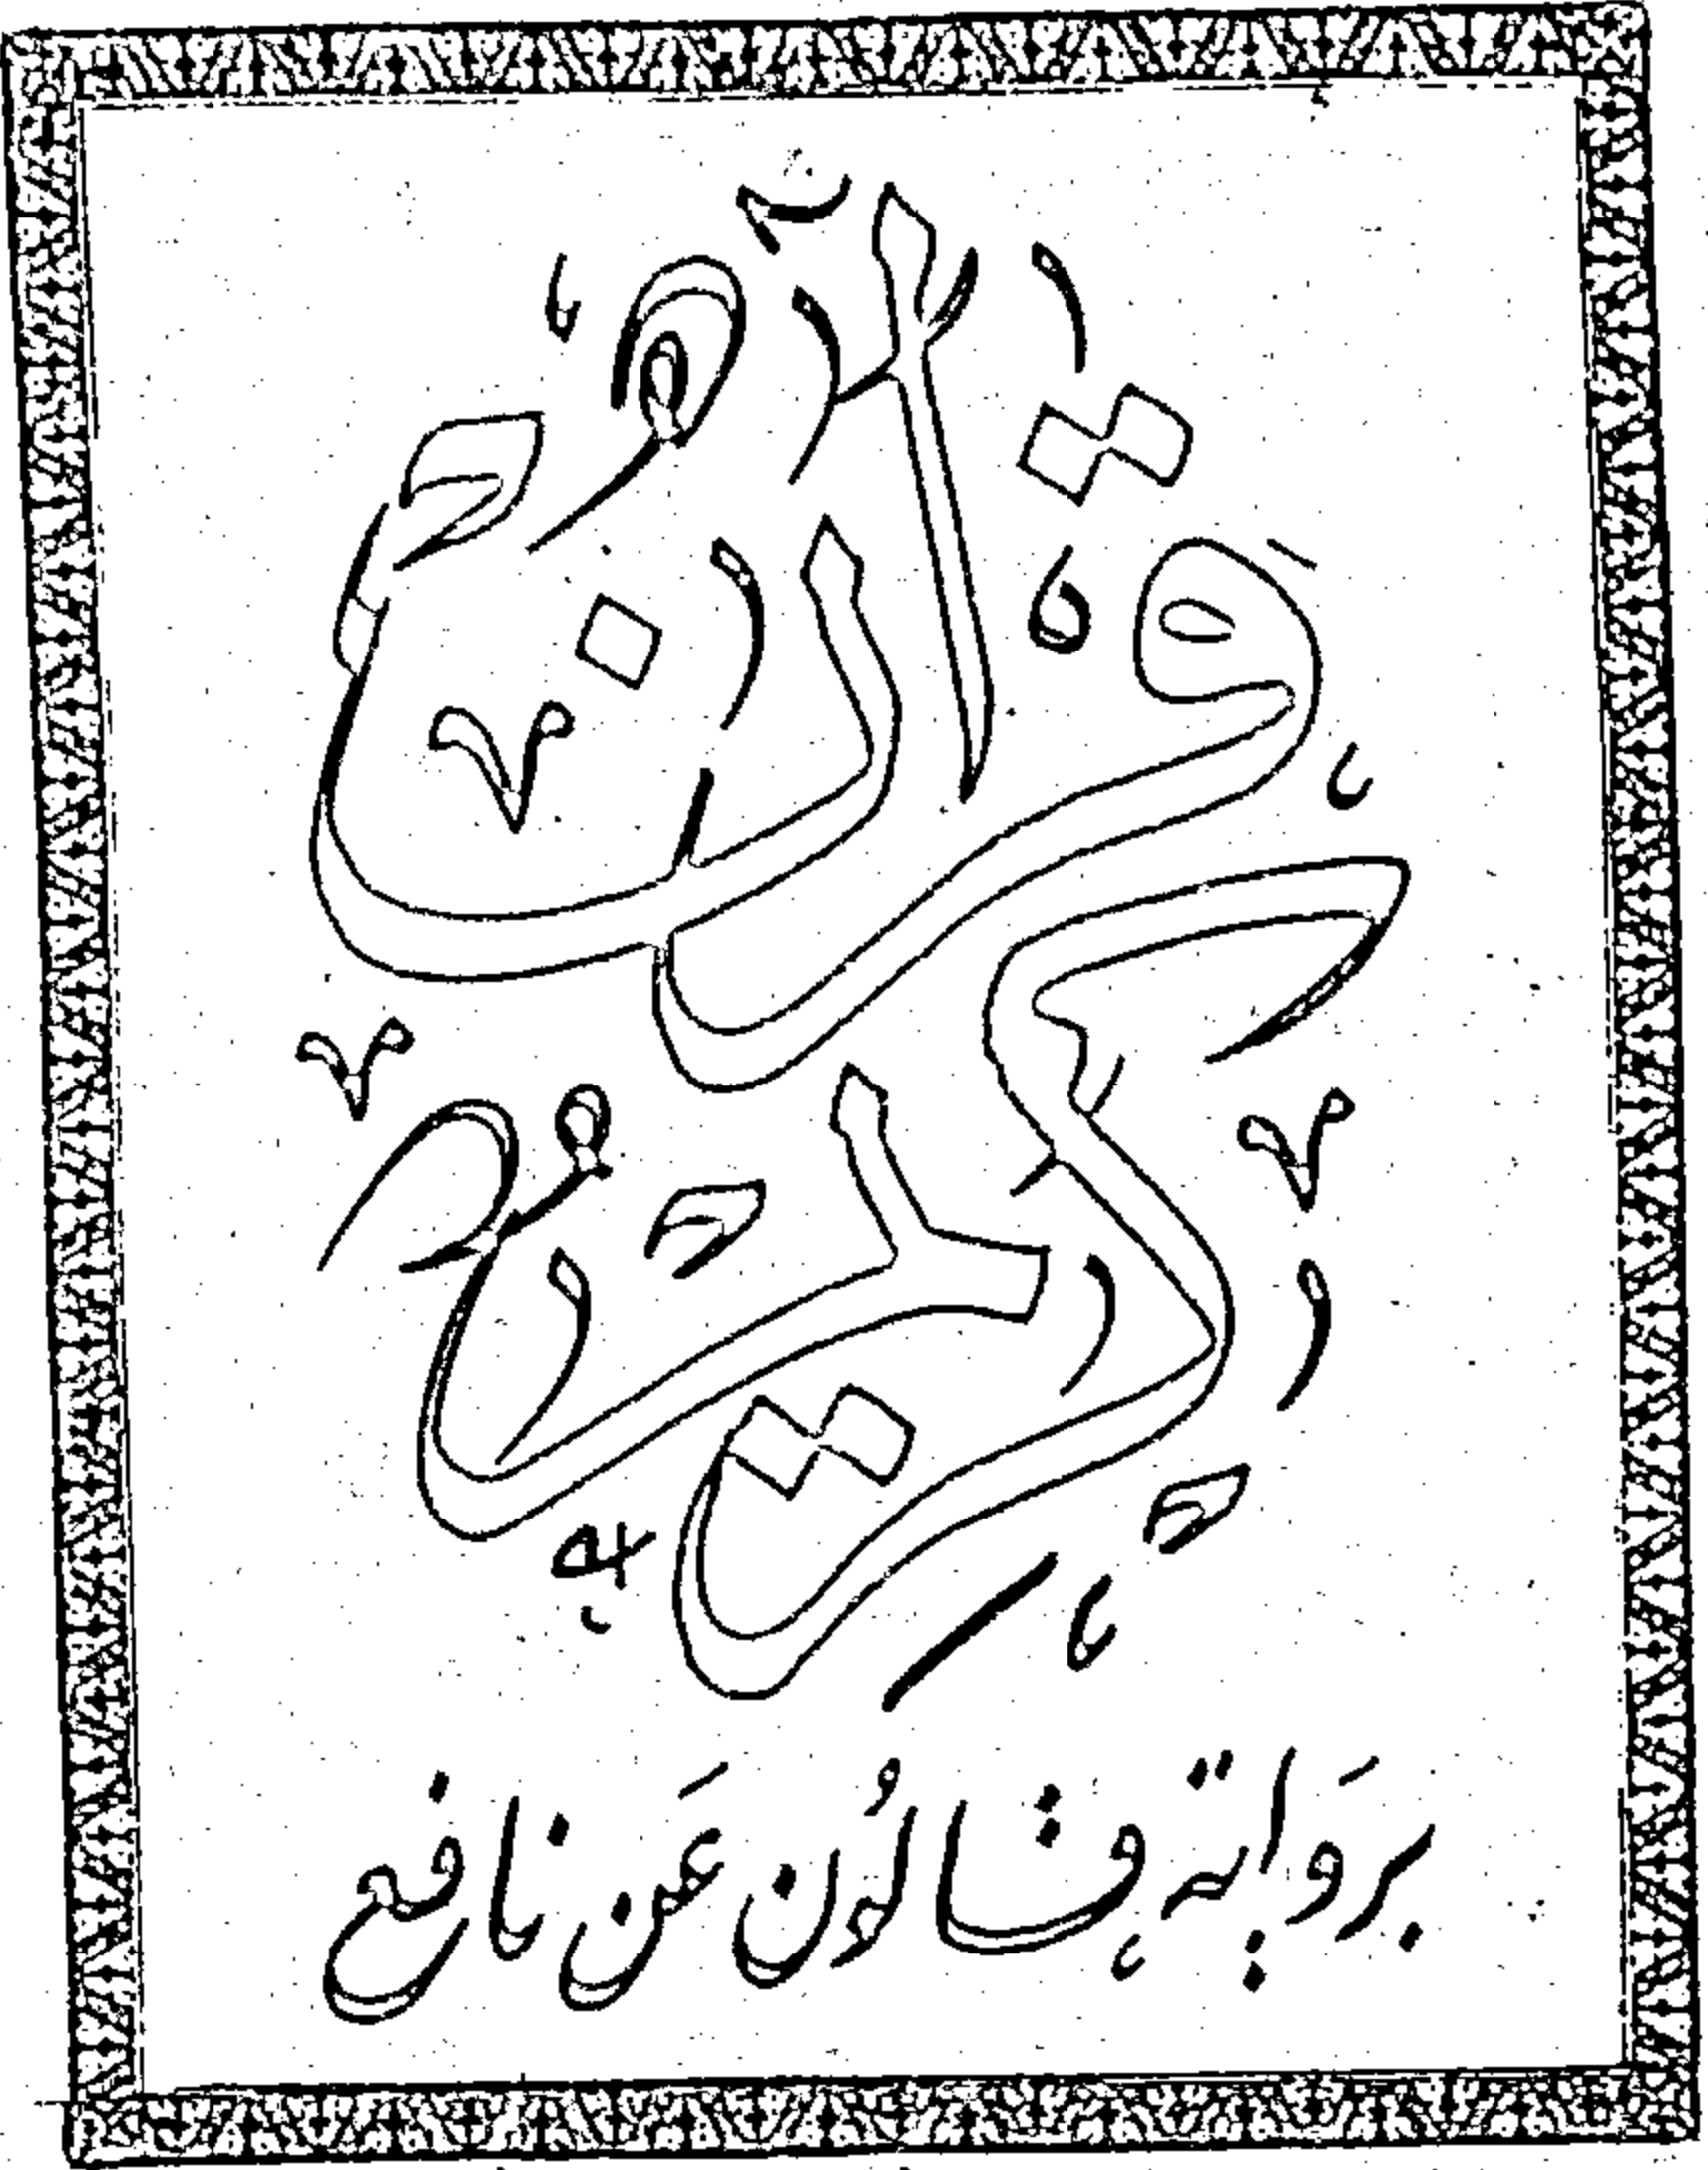 قرآن
كريم
بِرَوَايَة قَالُون عَن نَافِع